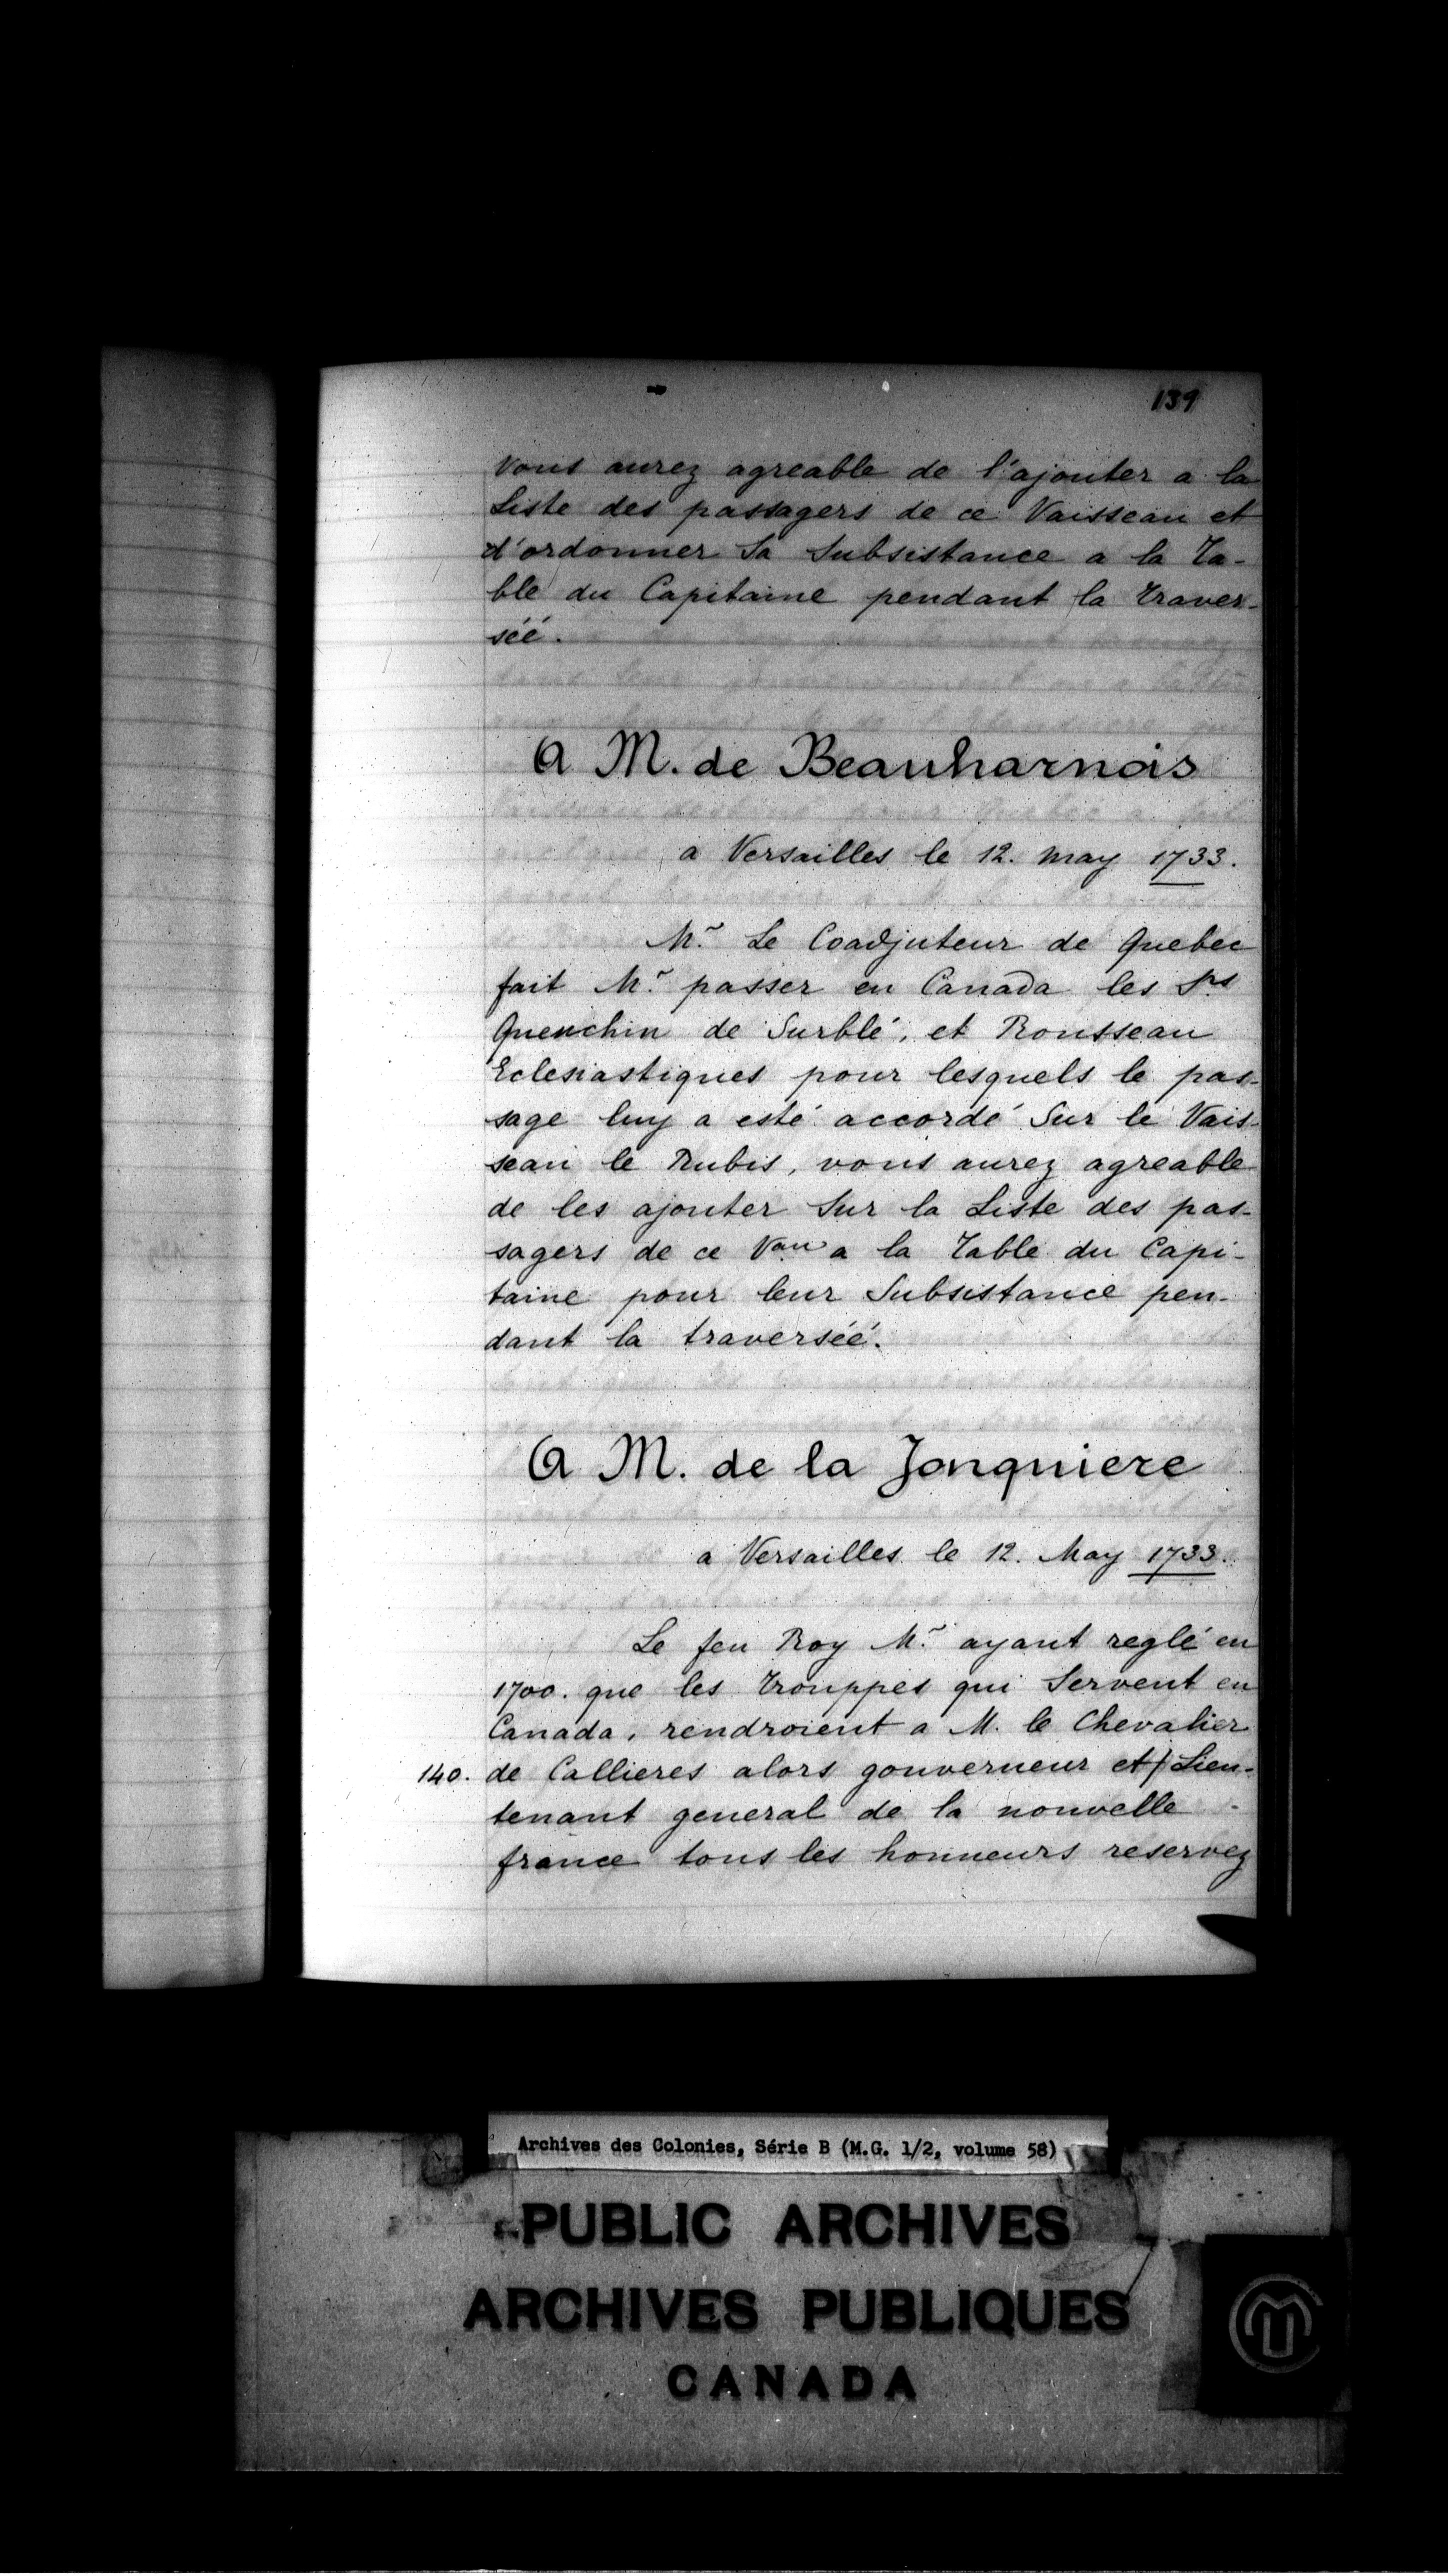 139
vous aurez agreable de l'ajouter a la
Liste des passagers de ce Vaisseau et
d'ordonner Sa Subsistance a la Ta-
ble du Capitaine pendant la traver-
séé.
A M. de Beauharnois
a Versailles le 12. may 1733.
Mr. Le Coadjuteur de Quebec
fait Mr. passer en Canada les Srs
Quenchin de Surblé, et Rousseau
Eclesiastiques pour lesquels le pas-
sage luy a esté accordé Sur le Vais-
seau le Rubis, vous aurez agreable
de les ajouter Sur la Liste des pas-
sagers de ce Vau a la Table du Capi-
taine pour leur Subsistance pen-
dant la traverséé.
A M. de la Jonquiere
a Versailles le 12. May 1733.
Le feu Roy Mr. ayant reglé en
1700. que les trouppes qui Servent en
Canada, rendroient a M. le Chevalier
140. de Callieres alors gouverneur et/ Lieu-
tenant general de la nouvelle -
france tous les honneurs reservez
Archives des Colonies, Série B (M.G. 1/2, volume 58)
PUBLIC ARCHIVES
ARCHIVES PUBLIQUES
CANADA